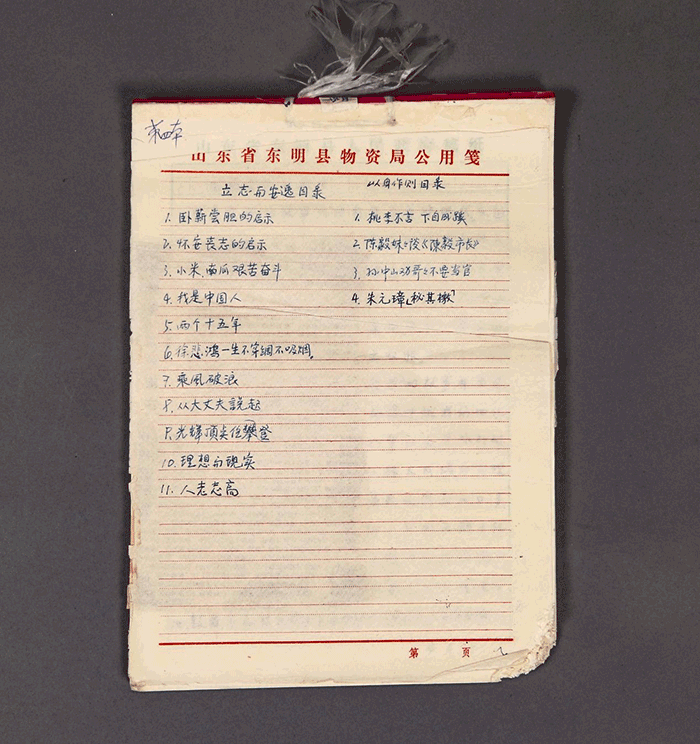 第四本
山东省东明县物资局公用笺
立志与安逸目录
1. 卧薪尝胆的启示
2. 怀安丧志的启示
3. 小米南瓜艰苦奋斗
4. 我是中国人
5. 两个十五年
6. 徐悲鸿一生不穿绸不吸烟。
7. 乘风破浪
8. 从大丈夫説起
9. 光辉顶尖任攀登
10. 理想与现实
11. 人老志高
以身作则目录
1. 桃李不言 下自成蹊
2. 陈毅妹《陈毅市长》
3. 孙中山劝哥哥不要当官
4. 朱元璋「秘其檄」
第 页